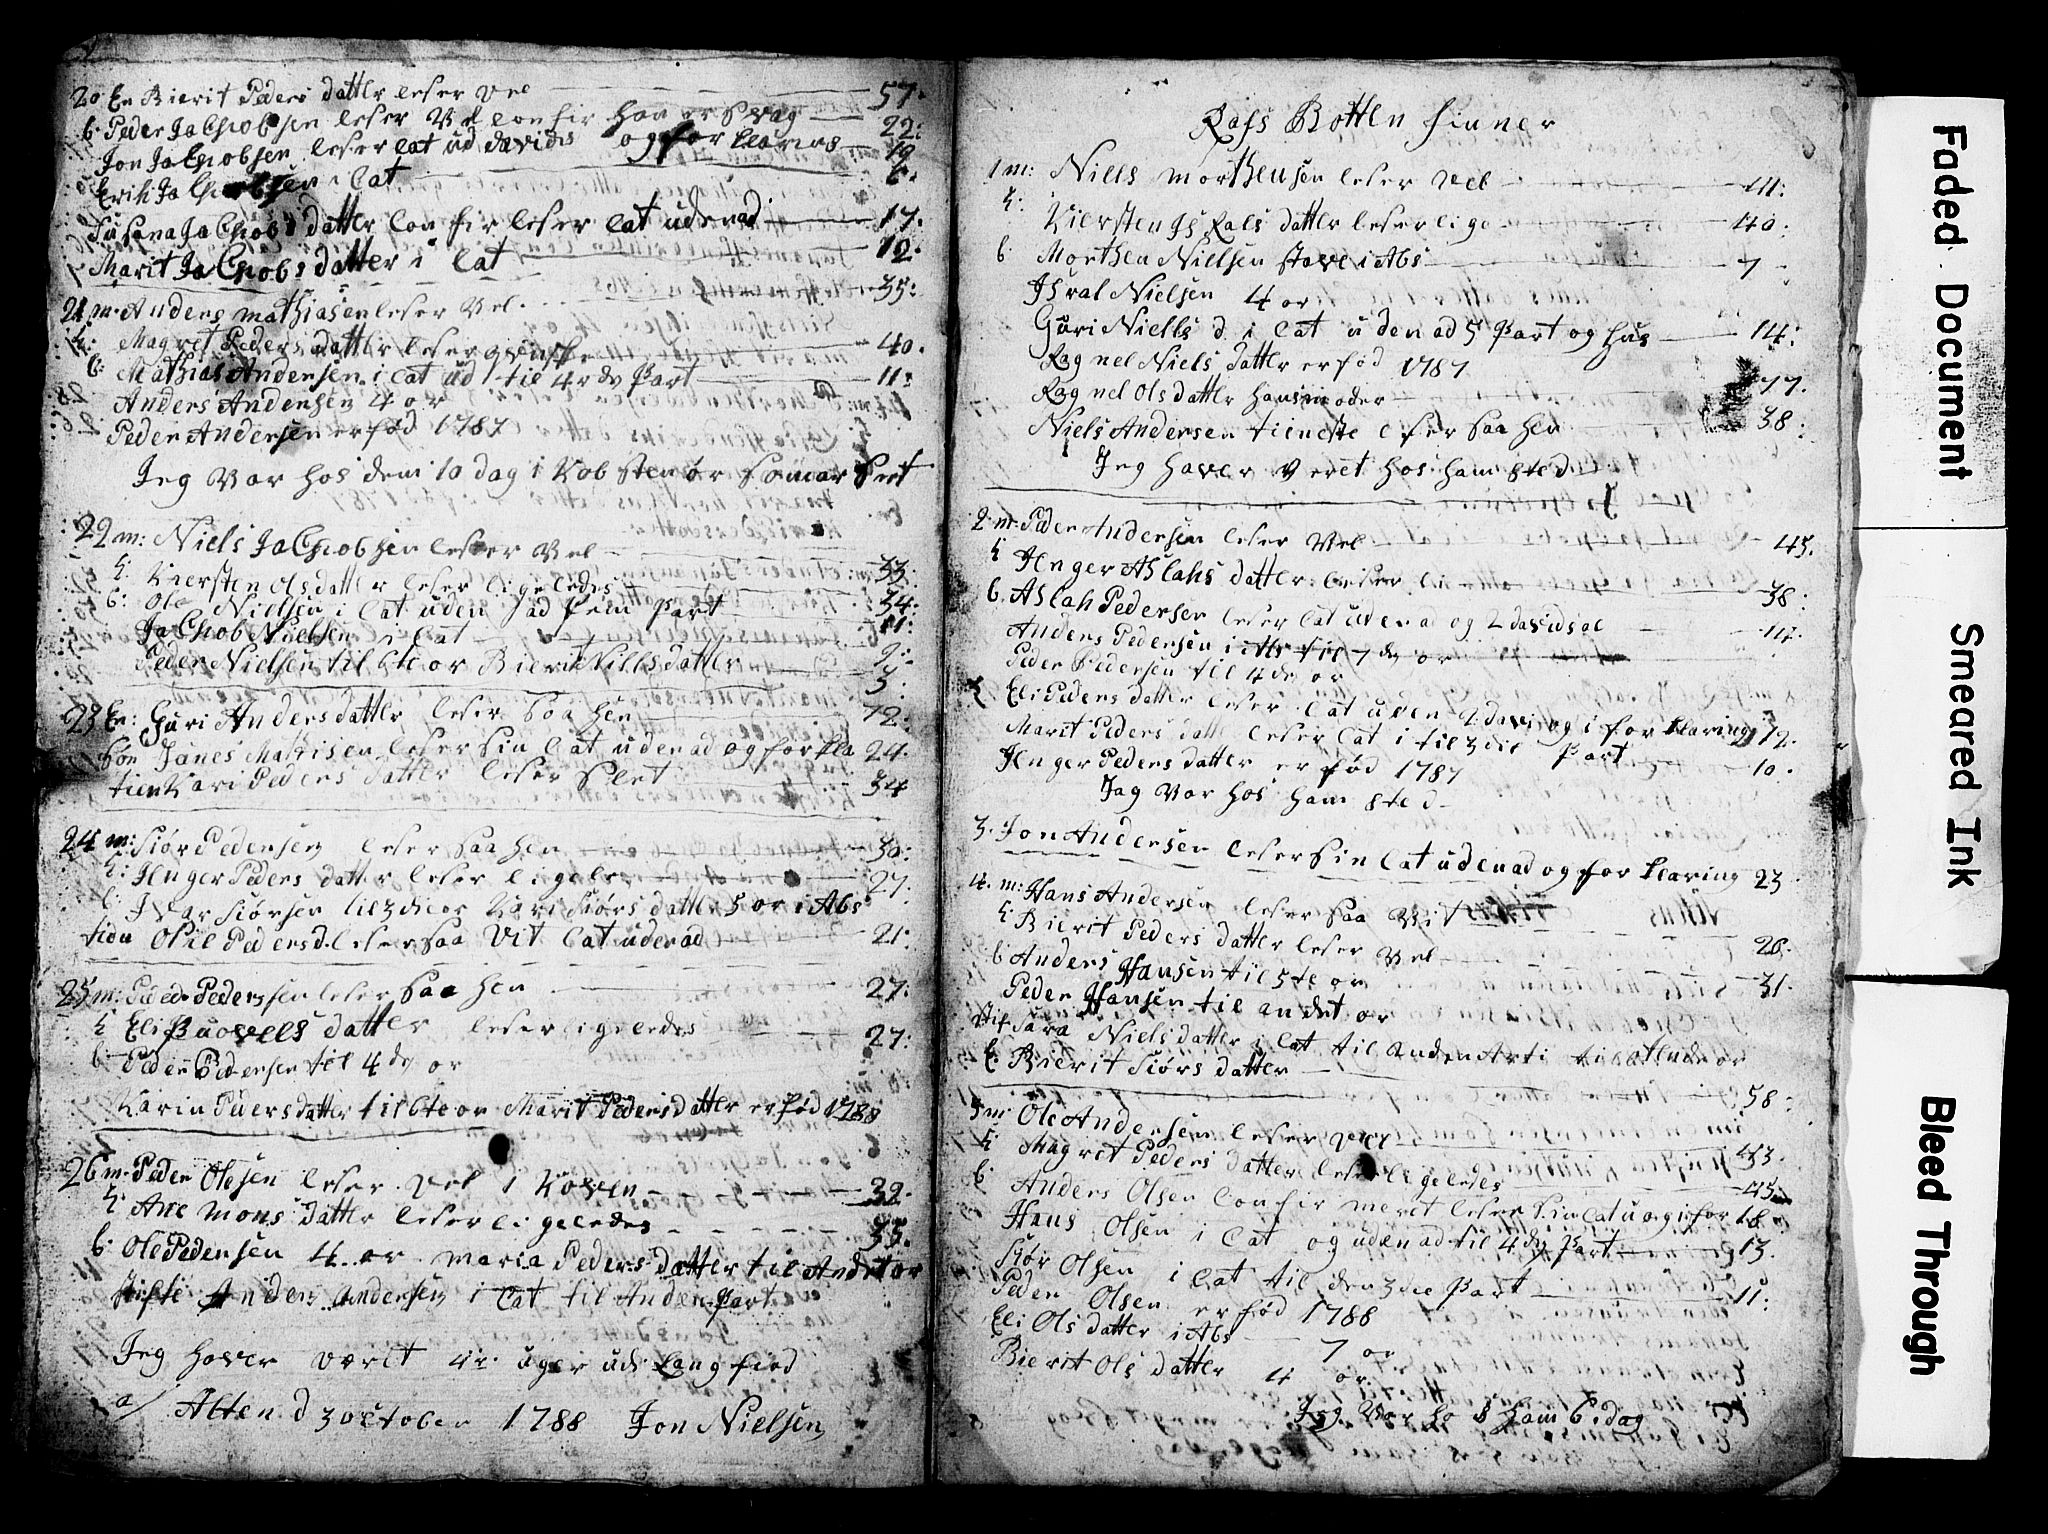 20 En Bierit Peders datter leser vel 57.
b. Peder JaChobsen leser vel confir han er svag 22:
Jon JaChobsen leser Cat ud davids og forklarens 19
Erik JaChobsen i Cat 6.
Susana JaChobs datter confir leser Cat udenad 17.
Marit JaChobs datter i Cat 12.
21 m. Anders Mathiasen leser vel. 35:
k: Magret Peders datter leser 40.
b: Mathias Andersen i Cat ud 1 til 4rde Part 11:
Anders Andersen 4 or
Peder Andersen er fød 1787
Jeg var hos dem 10 dag i somar
22 m: Niels JaChobsen leser vel 33:
k. Kiersten Olsdatter leser ligeledes 34:
b: Ole Nielsen i Cat uden Part 11:
JaChob Nielsen i Cat 9:
Peder Nielsen til 6te or Bierit Nillsdatter 3.
23 En: Guri Andersdatter leser saa hen 72.
søn Janes Matisen leser sin Cat udenad og forkla 24.
tien Kari Peders datter leser slet 34
24 m: Siør Pedersen leser saa hen 30:
k: Jnger Peders datter leser ligele 27.
b. Jvar Siørsen til 3die or Kari Siørs datter 5 or i Abs
tien Peders d. leser saa vit Cat udenad 21.
25 m: Peder Pedersen leser saa hen 27:
k Eli Puovels datter leser ligeledes 27:
b Peder Pedersen til 4de or
Karin Puers datter til 6te or Marit Pedersdatter er fød 1788
26 m. Peder Olesen leser vel i Koven 32.
k: Ane Mons datter leser ligeledes 35.
b: Ole Pedersen 4 or maria Peders datter til Andet or
stifte Anders Andersen i Cat til Anden Part
Jeg haver været uger udi Langfiord
a/ Alten d 3 october 1788 Jon Nielsen
Rafs Botten finner
1 m: Niels Morthensen leser vel 41:
k: Kiersten Jsrals datter leser lige 40:
b Morthen Nielsen stave i Abs 7
Jsral Nielsen 4 or
Guri Niells d. i Cat udenad 5 Part og hus 14:
Ragnel Niels datter er fød 1787
Ragnel Olsdatter hans moder 77.
Niels Andersen tieneste leser saa hen 38:
Jeg haver veret hos ham sted
2 m. Peder Andersen leser vel 45.
k Jnger Aslahs datter leser li 38:
b. Aslah Pedersen leser Cat udenad og 2 davids 17.
Anders Pedersen i Abs til 7de or
Peder Pedersen til 4de or
Eli Peders datter leser Cat uden davi og i forklaring 12.
Marit Peders datt leser Cat i til 3die Part 10.
Jnger Peders datter er fød 1787
Jag var hos ham sted
3. Jon Andersen leser sin Cat udenad og forklaring 23
4. m: Hans Andersen leser saa vit 26:
k: Bierit Peders datter leser vel 31.
b Anders Hansen til 5te or
Peder Hansen til andet or
stif Sara Niels datter i Cat til Anden Arti or
E. Bierit Siørs datter 58:
5 m Ole Andersen leser vel 43.
k: Magret Peders datter leser ligeledes 45.
b Anders Olsen confirmeret leser sin Cat u og i for 18
Hans Olsen i Cat og udenad til 4de Part 13.
Siør Olsen i Cat til den 3die Part 11:
Peder Olsen er fød 1788
Eli Ols datter i Abs 7 or
Bierit Ols datter 4 or
Jeg var hos ham 6 dag
Faded Document
Smeared Ink
Bleed Through